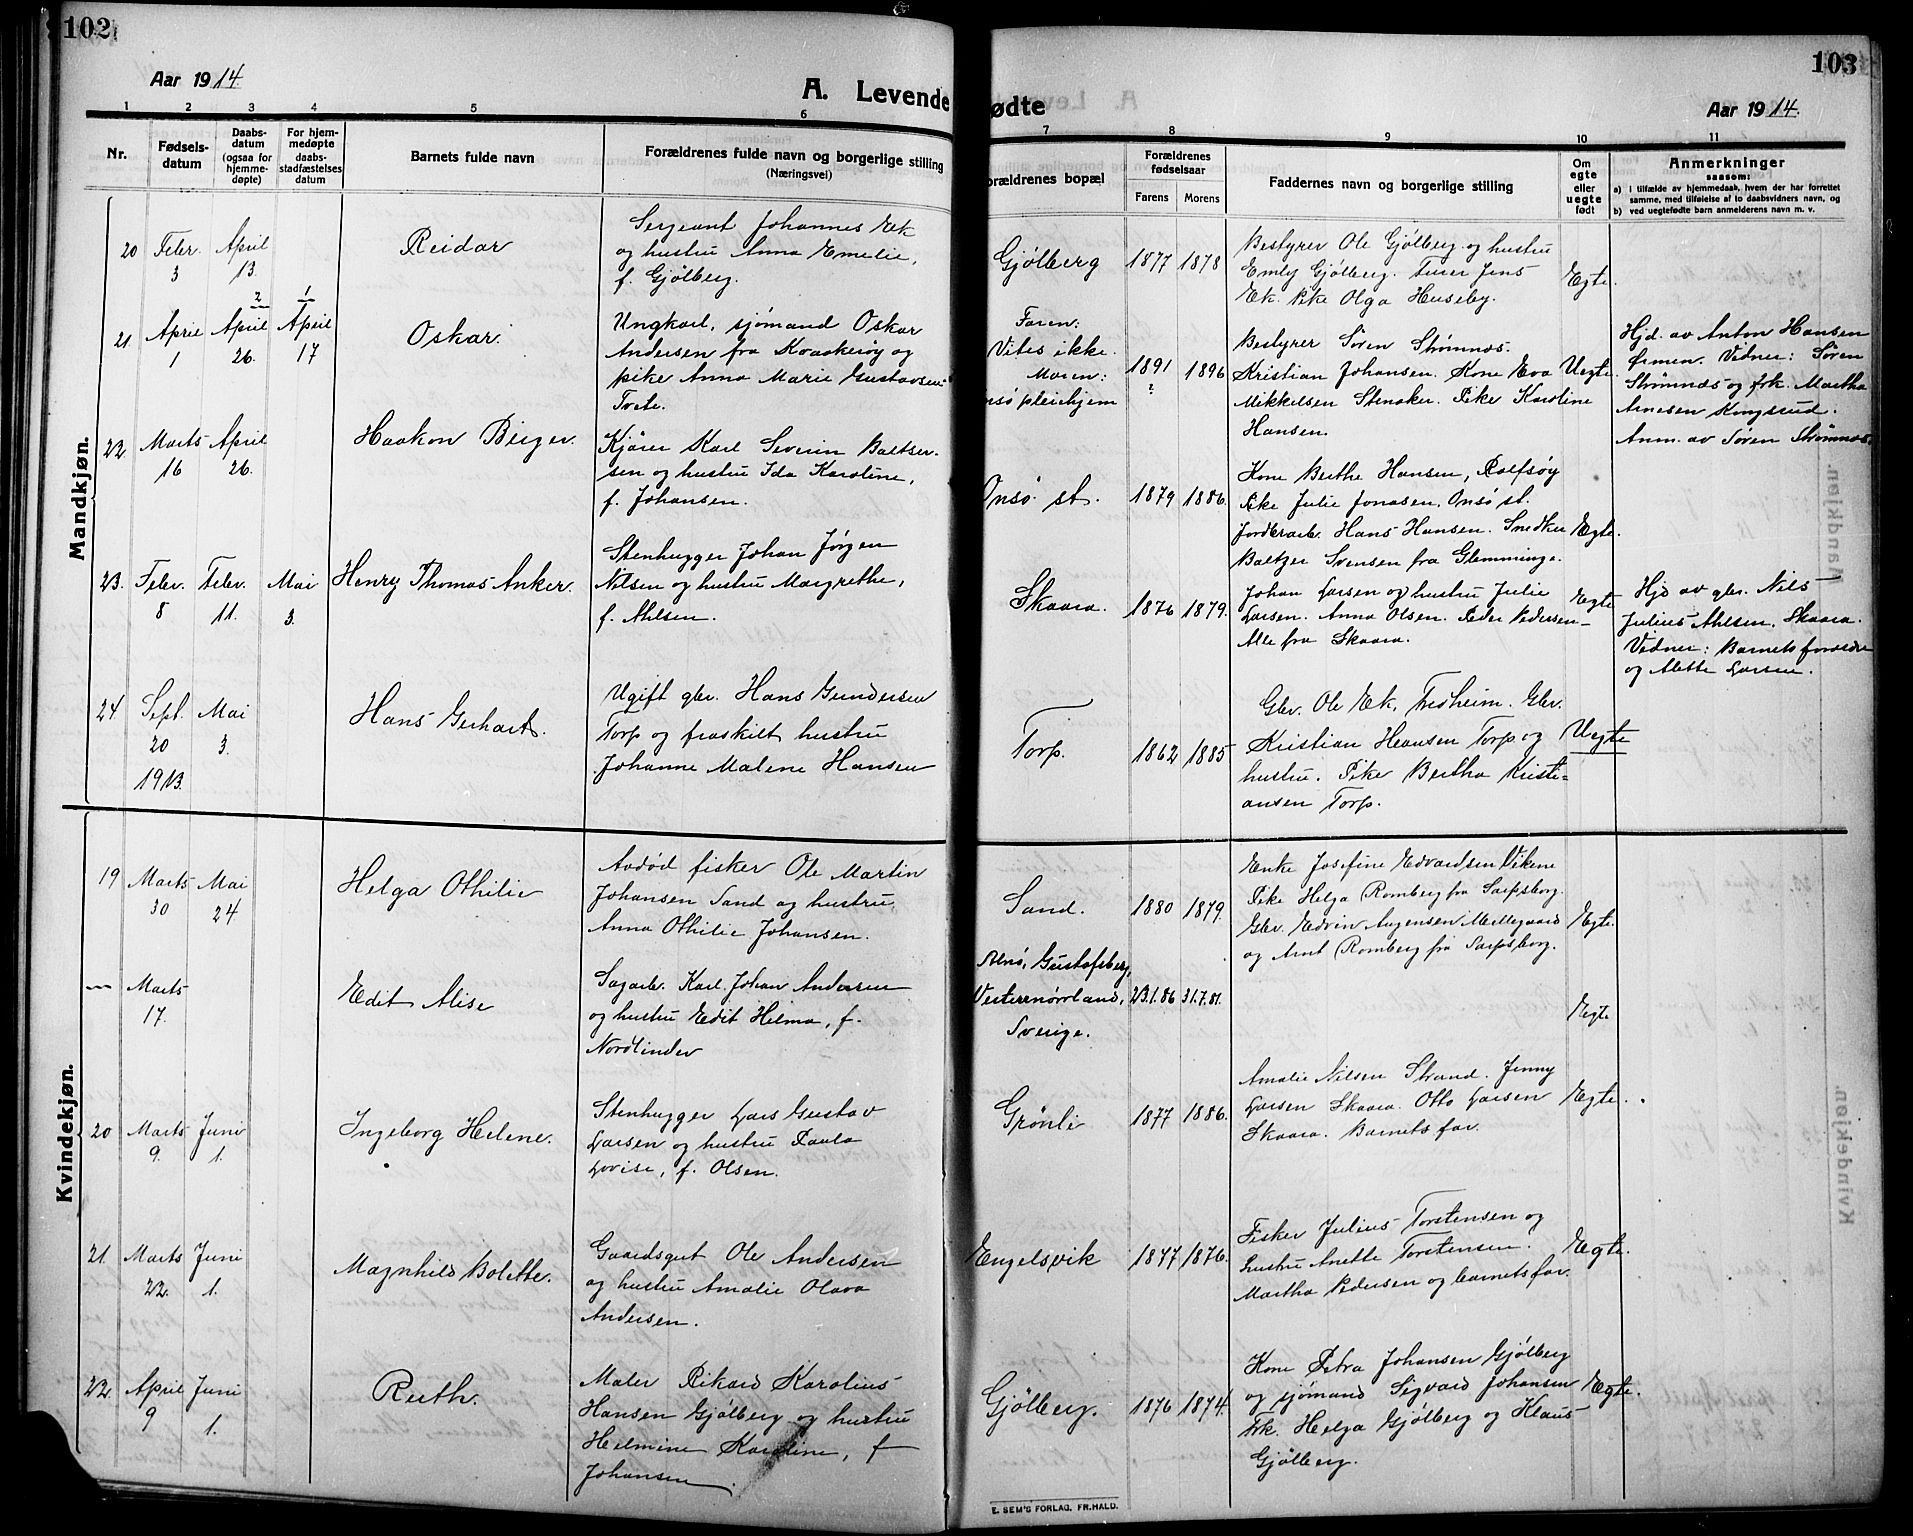 102
Aar 1914.
A. Levende
1 2 3 4 5 6
Nr.
Fødsels-
datum
Daabs-
datum
(ogsaa for
hjemme-
døpte)
For hjem-
medøpte
daabs-
stadfæstelses
datum
Barnets fulde navn
Forældrenes fulde navn og borgerlige stilling
(Næringsvei)
Mandkjøn.
20 Febr. 3 April 13. Reidar
Sergeant Johannes Ek
og hustru Anna Emelie,
f. Gjølberg.
21. April 1 2 April 26. 1 April 17 Oskar.
Ungkarl, sjømand Oskar
Andersen fra Kraakerøy og
pike Anna Marie Gustavsen
Tvete.
22 Marts 16 April 26. Haakon Birger.
Kjører Karl Severin Baltser-
sen og hustru Ida Karoline,
f. Johansen.
23. Febr. 8 Febr. 11. Mai 3. Henry Thomas Anker.
Stenhugger Johan Jørgen
Nilsen og hustru Margrethe,
f. Ahlsen.
24 Sept. 20 1913. Mai 3. Hans Gerhart.
Ugift gbr. Hans Gundersen
Torp og fraskilt hustru
Johanne Malene Hansen
Kvindekjøn.
19 Marts 30 Mai 24. Helga Othilie
Avdød fisker Ole Martin
Johansen Sand og hustru
Anna Othilie Johansen.
— Marts 17. Edit Alise
Sagarb. Karl Johan Andersen
og hustru Edit Hilma, f.
Nordlinder
20 Marts 9. Juni 1. Ingeborg Helene.
Stenhugger Lars Gustav
Larsen og hustru Paula
Lovise, f. Olsen.
21. Marts 22. Juni 1. Magnhild Bolette.
Gaardsgut Ole Andersen
og hustru Amalie Olava
Andersen.
22. April 9 Juni 1. Ruth.
Maler Rikard Karolius
Hansen Gjølberg og hustru
Helmine Karoline, f
Johansen.
103
ødte
Aar 1914.
7 8 9 10 11
orældrenes bopæl
Forældrenes
fødselsaar
Farens Morens
Faddernes navn og borgerlige stilling
Om
egte
eller
uegte
født
Anmerkninger
saasom:
a) i tilfælde av hjemmedaab, hvem der har forrettet
samme, med tilføielse af to daabsvidners navn, og
b) ved uegtefødte barn anmelderens navn m. v.
Gjølberg 1877 1878
Bestyrer Ole Gjølberg og hustru
Emly Gjølberg. Jens
Ek. Pike Olga Huseby.
Egte.
Faren:
Vites ikke.
Moren:
nsø pleiehjem
1891 ? 1896
Bestyrer Søren Strømnes.
Kristian Johansen. Kone Eva
Mikkelsen Stenaker. Pike Karoline
Hansen.
Uegte.
Hjd. av Anton Hansen
Ørmen. Vidner: Søren
Strømnes og frk. Martha
Arnesen Kongsrud.
Anm. av Søren Strømnes.
Onsø st. 1879 1886.
Kone Berthe Hansen, Rolfsøy
Pike Julie Jonasen, Onsø st.
Jordarb. Hans Hansen. Snedker
Baltzer Svensen fra Glemminge.
Egte.
Skaara. 1876 1879.
Johan Larsen og hustru Julie
Larsen. Anna Olsen. Peder Pedersen
Alle fra Skaara.
Egte
Hjd av gbr. Nils
Julius Ahlsen, Skaara.
Vidner: Barnets forældre
og Alette Larsen.
Torp. 1862 1885
Gbr. Ole Ek, Gbr.
Kristian Hansen Torp og
hustru. Pike Bertha Kristi-
ansen Torp.
Uegte
Sand. 1880 1879.
Enke Josefine Edvardsen Vikene
Pike Helga Romberg fra Sarpsborg.
Gbr. Edvin Augensen Mellegaard
og Arnt Romberg fra Sarpsborg.
Egte.
Alnö, Gustafsberg,
Vesternörrland,
Sverige.
23.1.86 31.7.81.
Egte
Grønli 1877 1886.
Amalie Nilsen Strand. Jenny
Larsen Skaara. Otto Larsen
Skaara. Barnets far.
Egte.
Engelsvik 1877 1876.
Fisker Julius Torstensen og
hustru Anette Torstensen.
Martha Pedersen og barnets far.
Egte.
Gjølberg. 1876 1874.
Kone Petra Johansen Gjølberg
og sjømand Sigvard Johansen
Frk. Helga Gjølberg og Klaus
Gjølberg.
Egte.
E. SEM'S FORLAG, FR.HALD.